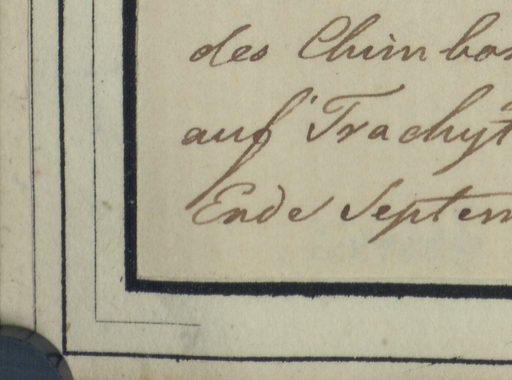 des Chimbor
auf Trachyt
Ende Septem